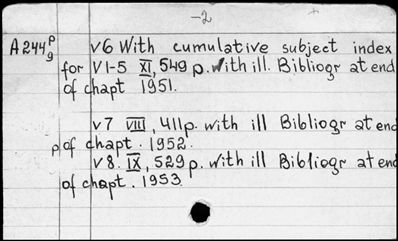 -2
A244 p g v6 With cumulative subject index
for v1-5 XI, 549 p. with ill. Bibliogr at end
of chapt 1951.
v7 VIII, 411p. with ill Bibliogr at end
p of chapt. 1952.
v8. IX, 529 p. with ill Bibliogr at end
of chapt. 1953